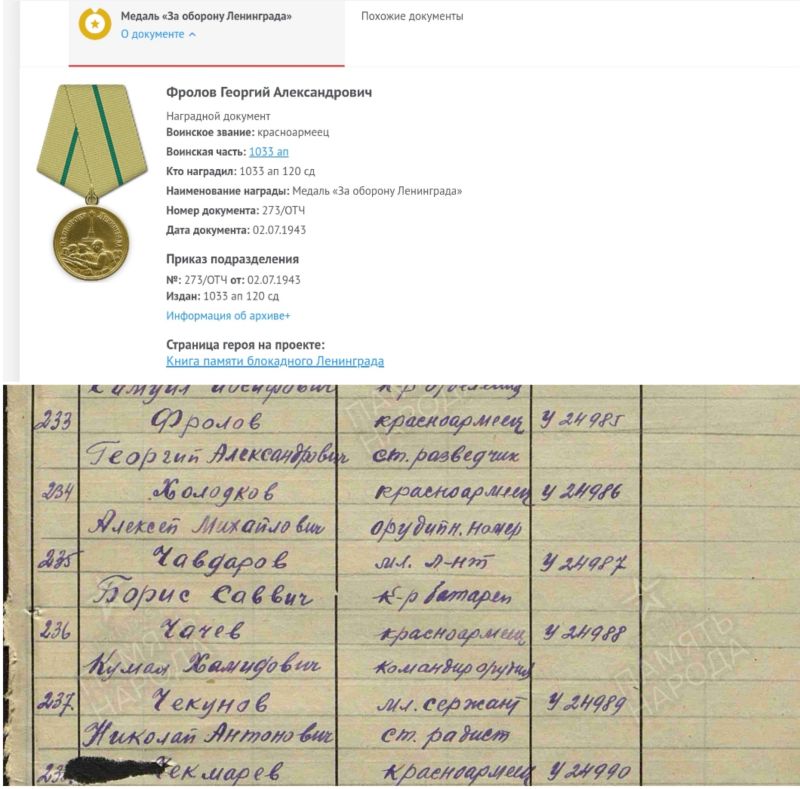 Медаль «За оборону Ленинграда» Похожие документы
О документе
Фролов Георгий Александрович
Наградной документ
Воинское звание: красноармеец
Воинская часть: 1033 ап
Кто наградил: 1033 ап 120 сд
Наименование награды: Медаль «За оборону Ленинграда»
Номер документа: 273/ОТЧ
Дата документа: 02.07.1943
Приказ подразделения
№: 273/ОТЧ от: 02.07.1943
Издан: 1033 ап 120 сд
Информация об архиве+
Страница героя на проекте:
Книга памяти блокадного Ленинграда
233 Фролов красноармеец У 24985
Георгий Александрович ст. разведчик
234 Холодков красноармеец У 24986
Алексей Михайлович орудийн. номер
235 Чавдаров мл. л-нт У 24987
Борис Саввич к-р батареи
236 Чачев красноармеец У 24988
Хамидович командир орудия
237. Чекунов мл. сержант У 24989
Николай Антонович ст. радист
Чекмарев красноармеец У 24990
ПАМЯТЬ
НАРОДА